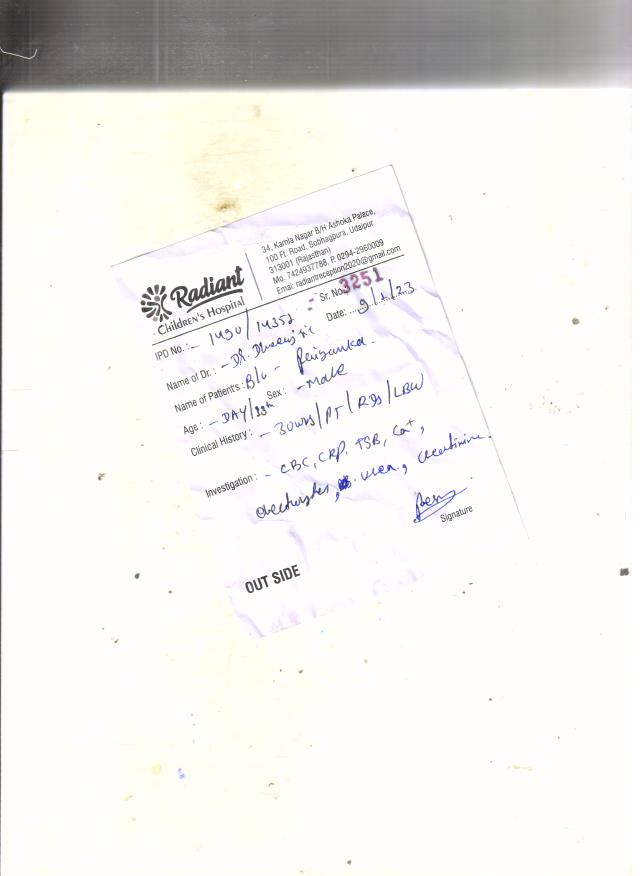 Radiant
CHILDREN'S HOSPITAL
34, Kamla Nagar B/H Ashoka Palace,
100 Ft. Road, Sobhagpura, Udaipur
313001 (Rajasthan)
Mo. 7424937788, P. 0294-2960009
Email: radiantreception2020@gmail.com
Sr. No. 3251
IPD No.: - 1490/14352
Date: 9/1/23
Name of Dr.: - Dr.
Name of Patient's: B/o - Priyanka.
Age: - DAY/ Sex: - Male
Clinical History: - 30wks/PT/RDS/LBW
Investigation: - CBC, CRP, TSB, Ca+,
electrolytes, urea, creatinine.
Signature
OUT SIDE